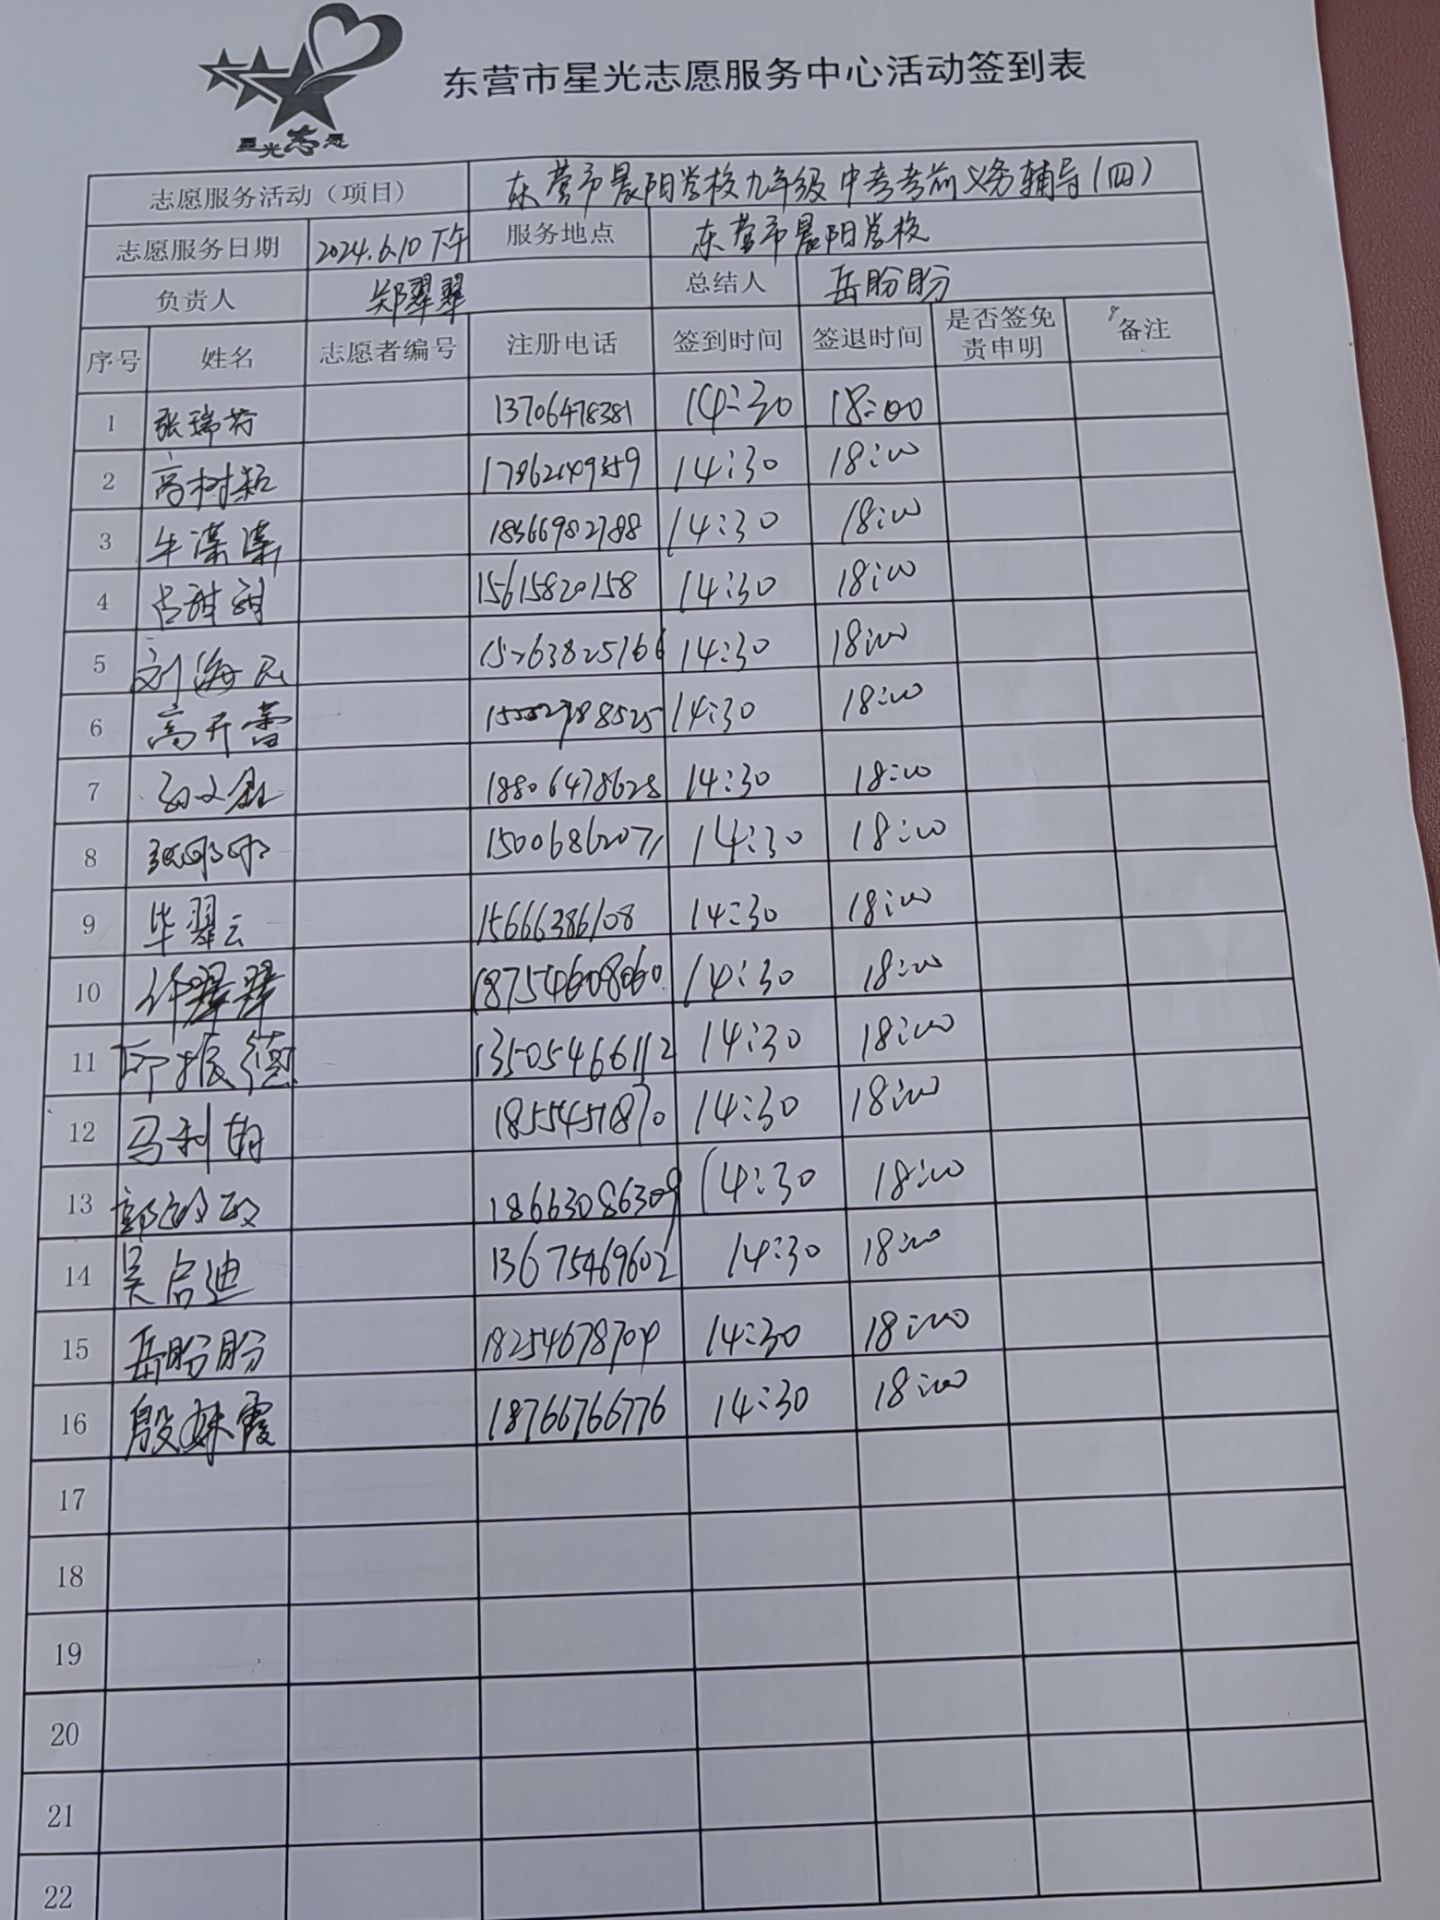 星光志愿
东营市星光志愿服务中心活动签到表
志愿服务活动（项目） 东营市晨阳学校九年级中考考前义务辅导(四)
志愿服务日期 2024.6.10下午 服务地点 东营市晨阳学校
负责人 郑翠翠 总结人 岳盼盼
序号 姓名 志愿者编号 注册电话 签到时间 签退时间 是否签免责申明 备注
1 张瑞芳 13706478381 14:30 18:00
2 高树 17862149359 14:30 18:00
3 牛潆潆 18366982788 14:30 18:00
4 吕甜甜 15615820158 14:30 18:00
5 刘海元 15263825166 14:30 18:00
6 高开蕾 14:30 18:00
7 18806478628 14:30 18:00
8 15006862071 14:30 18:00
9 毕翠云 15666386108 14:30 18:00
10 许翠翠 18754608060 14:30 18:00
11 印振德 13505466112 14:30 18:00
12 马利娟 14:30 18:00
13 郭 18663086309 14:30 18:00
14 吴启迪 13675469602 14:30 18:00
15 岳盼盼 18254678704 14:30 18:00
16 殷姝霞 18766766776 14:30 18:00
17
18
19
20
21
22